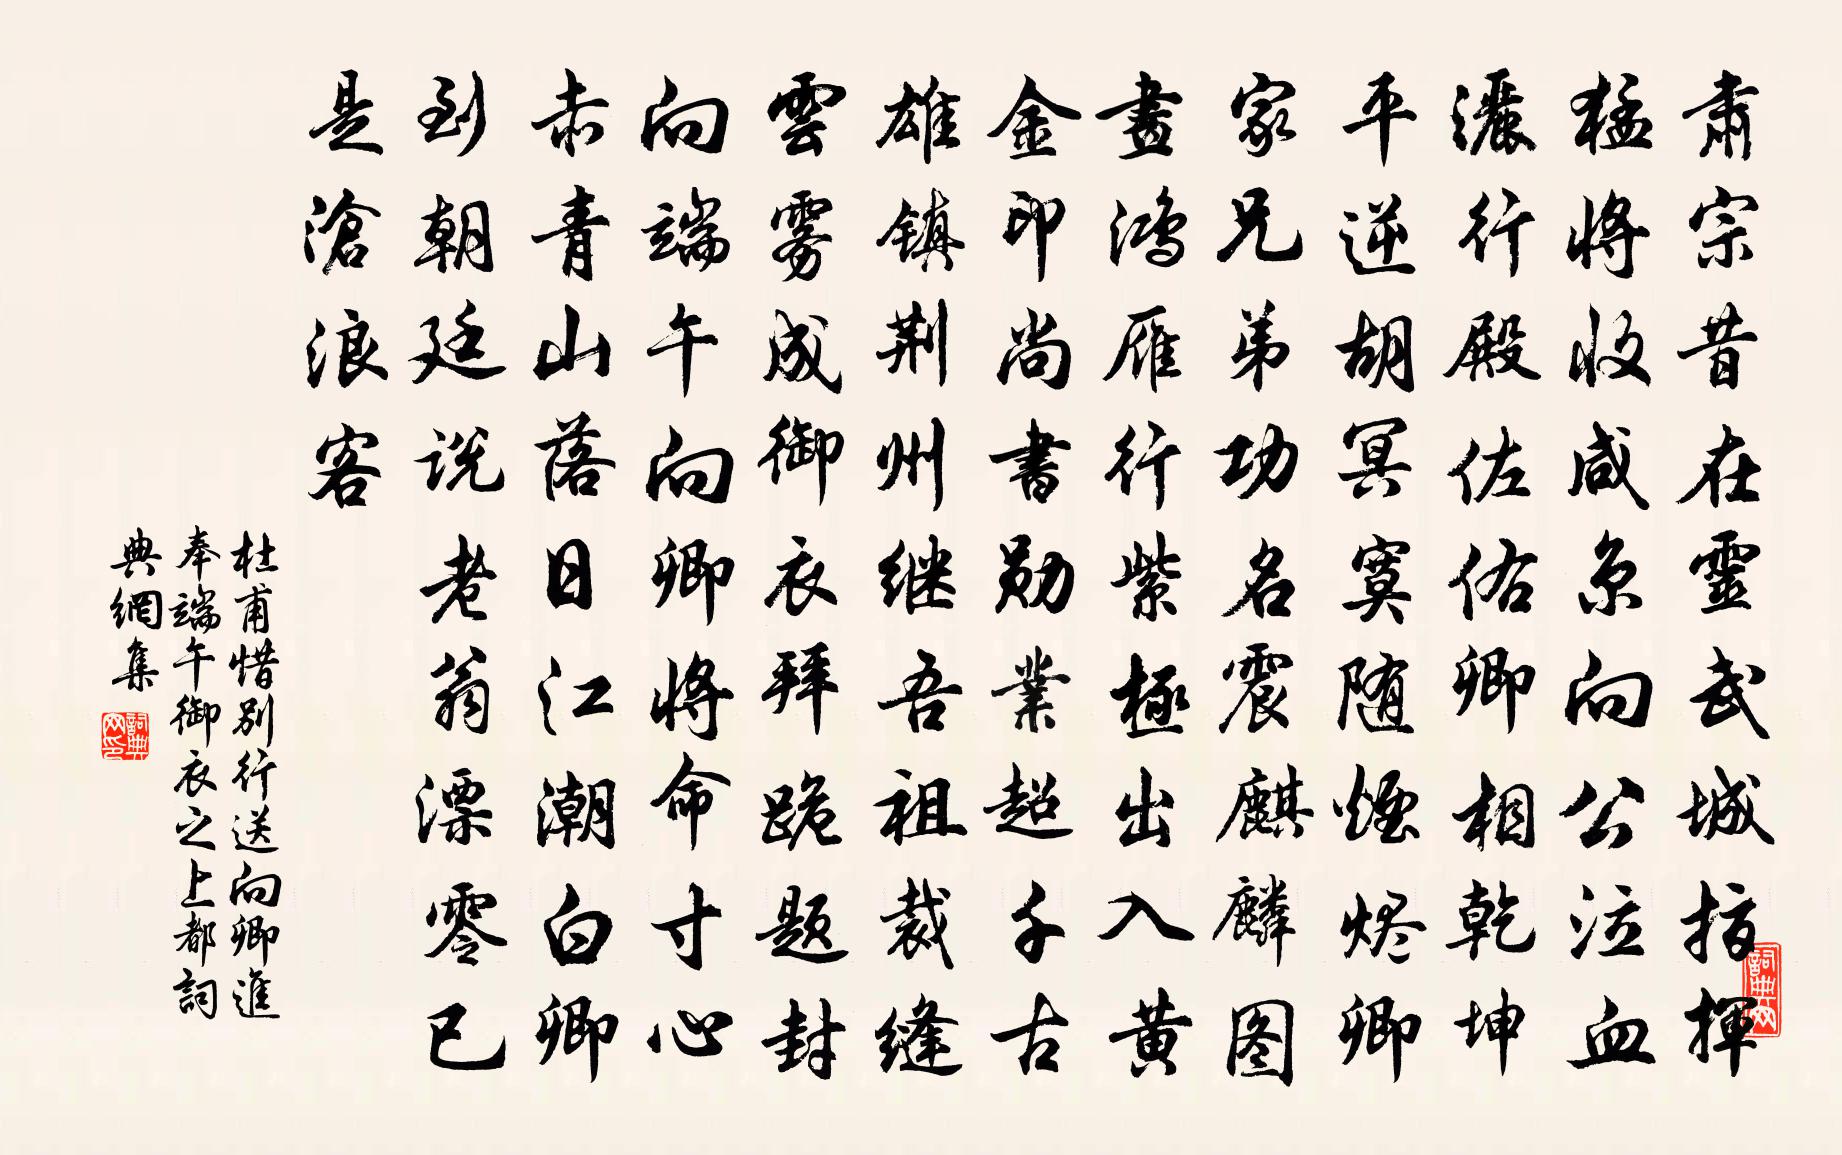 肃宗昔在靈武城指揮
猛将收咸京向公泣血
灑行殿佐佑卿相乾坤
平逆胡冥寞随煙烬卿
家兄弟功名震麒麟图
畫鸿雁行紫極出入黄
金印尚書勋業超千古
雄镇荆州继吾祖裁缝
雲雾成御衣拜跪题封
向端午向卿将命寸心
赤青山落日江潮白卿
到朝廷说老翁漂零已
是滄浪客
杜甫惜别行送向卿進
奉端午御衣之上都詞
典網集
詞典网印
詞典网